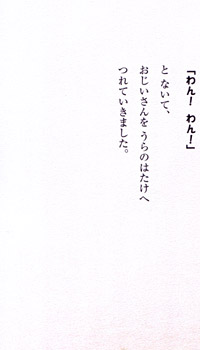 「わん！　わん！」
と ないて、
おじいさんを うらのはたけへ
つれていきました。